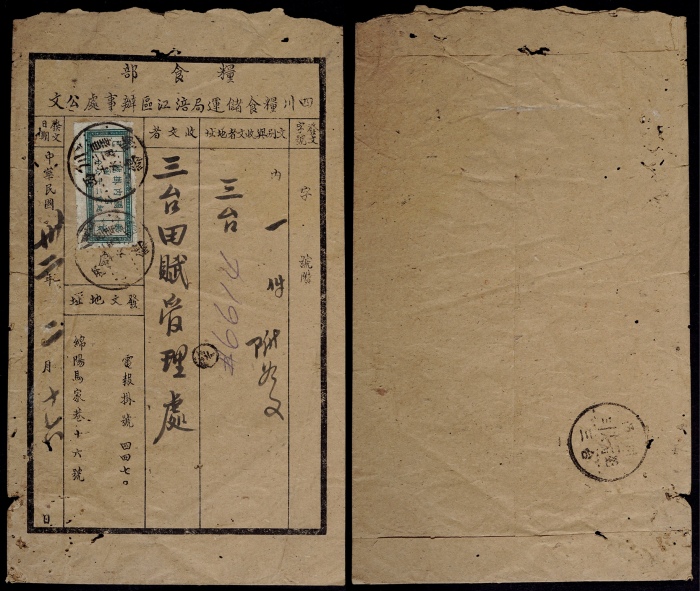 糧食部
四川糧食儲運局涪江區辦事處公文
發文字號
字 號附
內一件附公文
文別與收文者地址
三台
收文者
三台田賦管理處
發文地址
電報掛號 四四七〇
綿陽馬家巷十六號
發文日期
中華民國卅二年二月十六日
三台